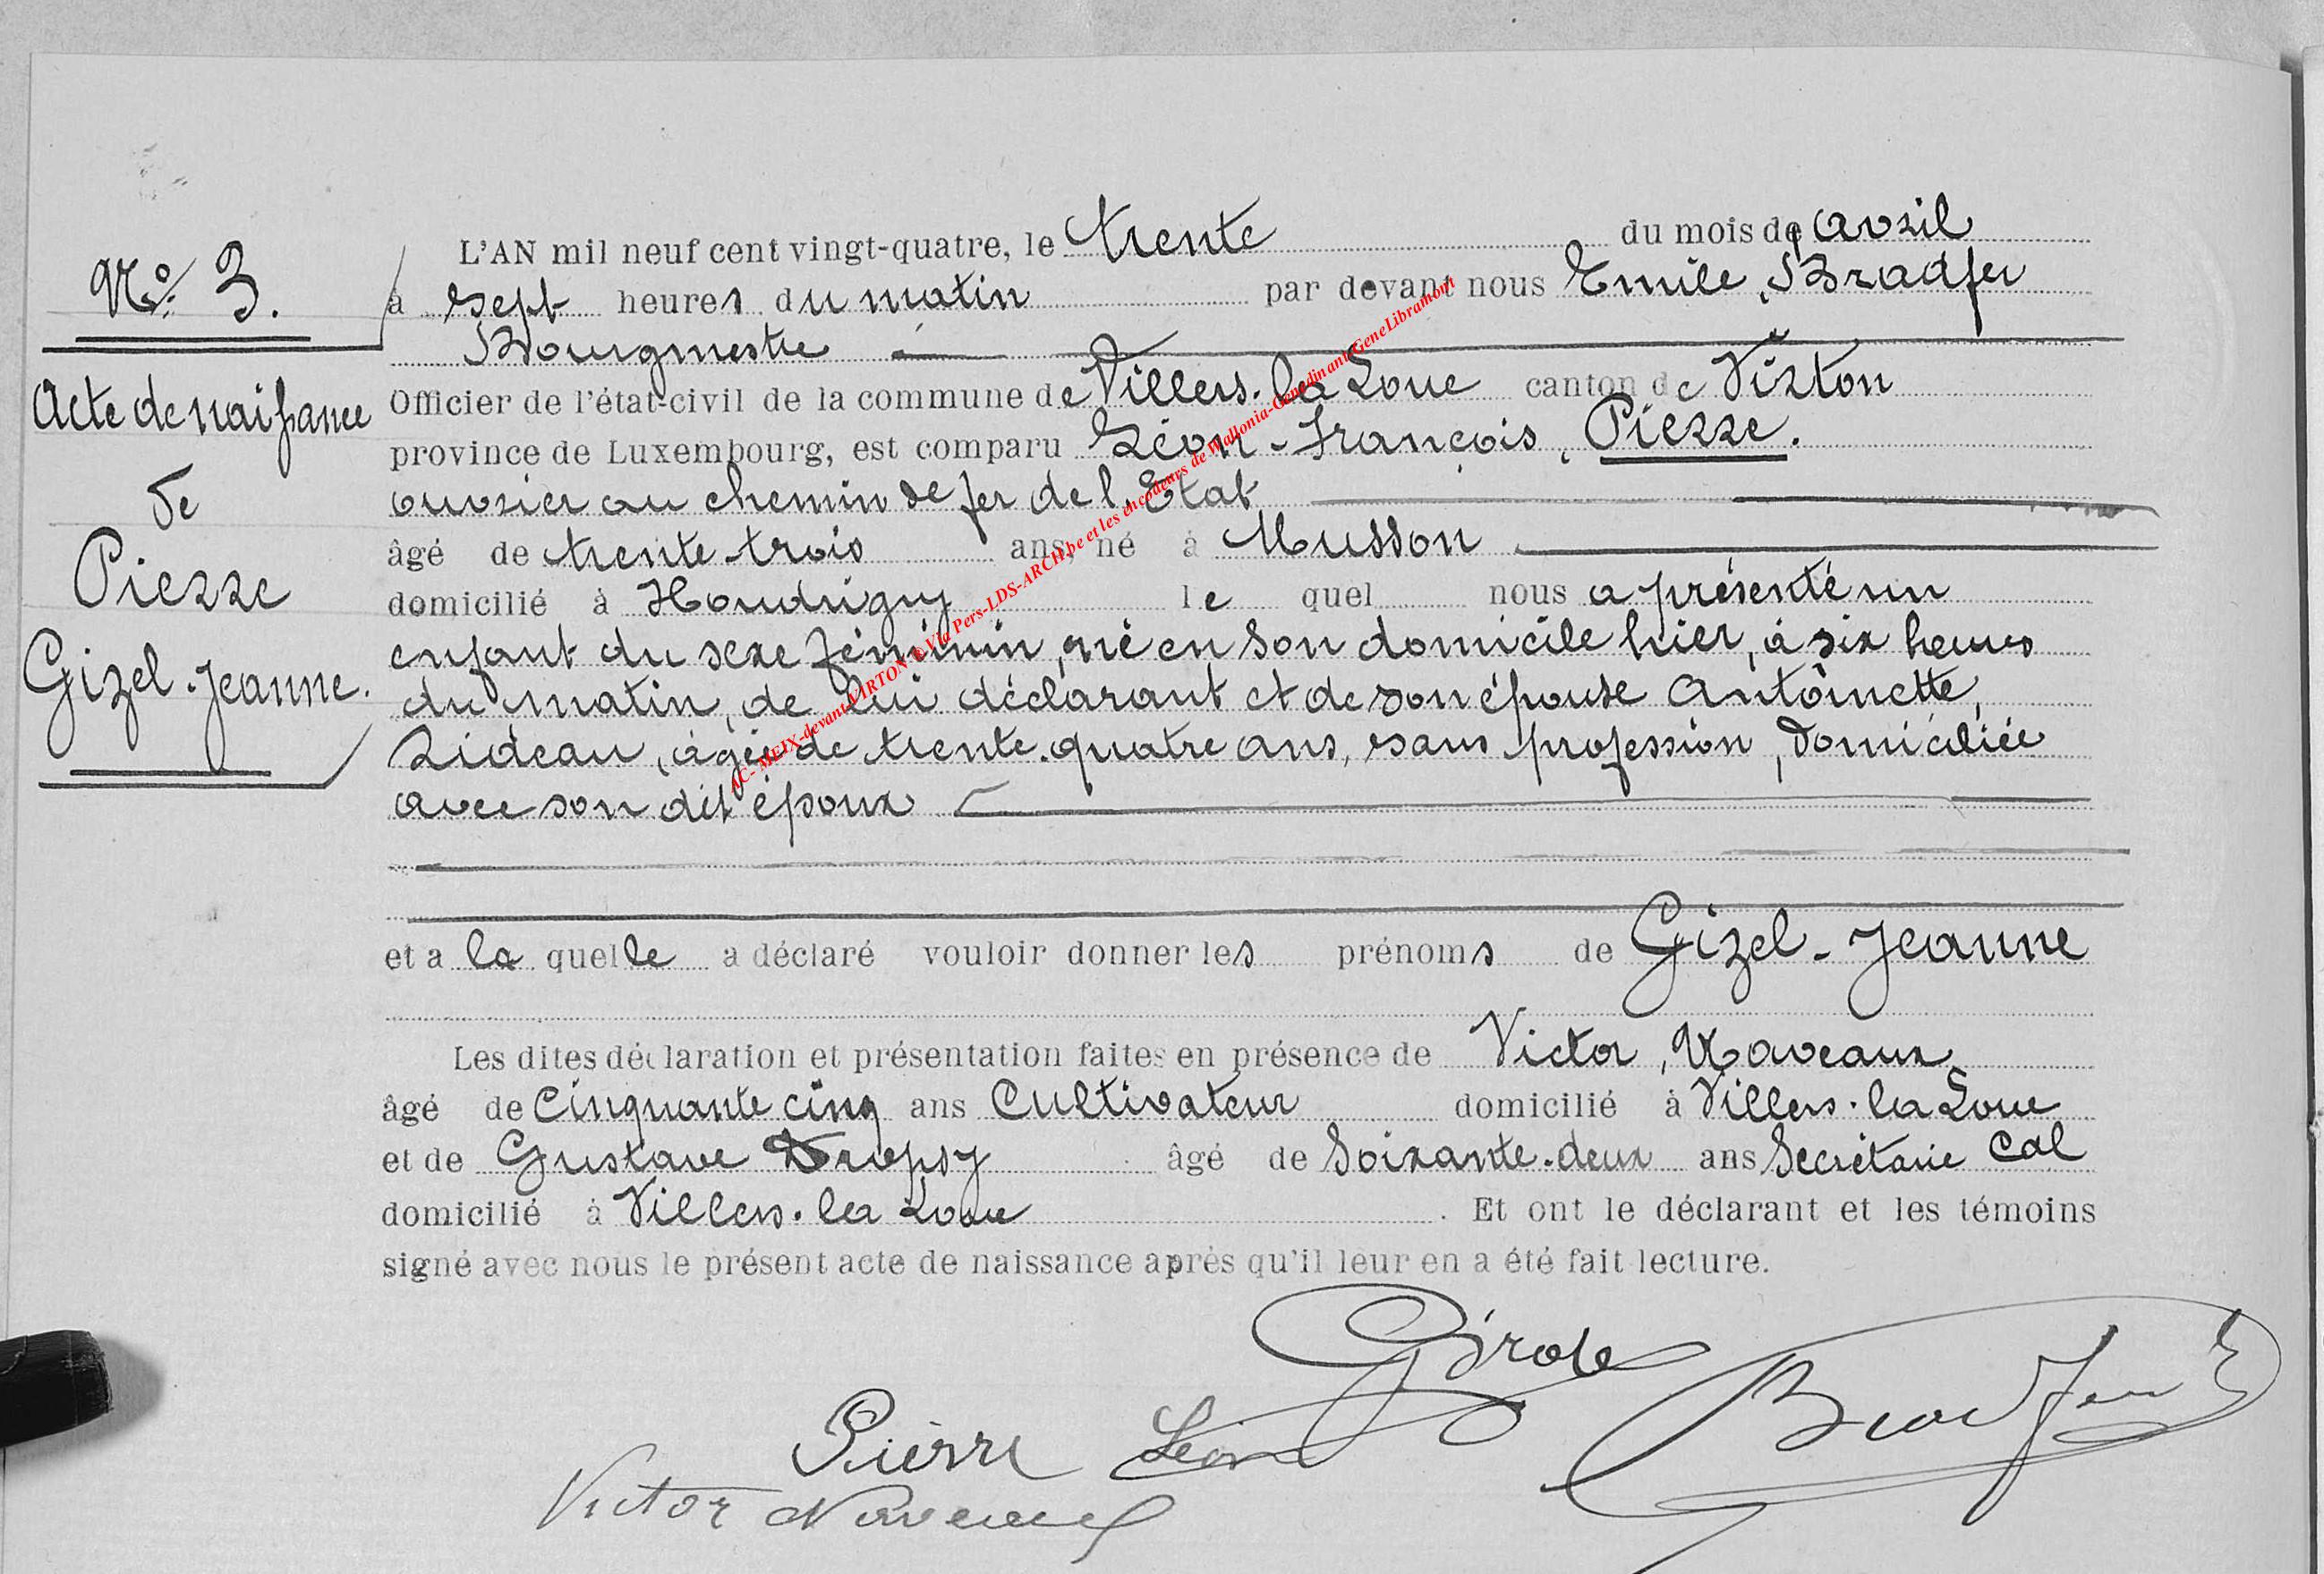 N.º 3.
Acte de naissance
de
Pierre
Gizel-Jeanne.
L'AN mil neuf cent vingt-quatre, le trente du mois de avril
à sept heures du matin par devant nous Emile, Bradfer
Bourgmestre
Officier de l'état-civil de la commune de Villers-la Loue canton de Virton
province de Luxembourg, est comparu Léon-François, Pierre.
ouvrier au chemin de fer de l'Etat
âgé de trente-trois ans, né à Musson
domicilié à Houdrigny le quel nous a présenté un
enfant du sexe féminin, né en son domicile hier, à six heures
du matin, de lui déclarant et de son épouse Antoinette,
Rideau, âgée de trente-quatre ans, sans profession, domiciliée
avec son dit époux
et a la quelle a déclaré vouloir donner les prénoms de Gizel-Jeanne
Les dites déclaration et présentation faites en présence de Victor, Naveaux
âgé de Cinquante cinq ans Cultivateur domicilié à Villers-la Loue
et de Gustave Dropsy âgé de Soixante-deux ans Secrétaire Cal
domicilié à Villers-la Loue . Et ont le déclarant et les témoins
signé avec nous le présent acte de naissance après qu'il leur en a été fait lecture.
Pierre Léon
Bradfer
Victor Naveaux
AC-MEIX-devant-VIRTON Via Pers-LDS-ARCH.be et les encodeurs de Wallonia-Genedinant-GeneLibramont